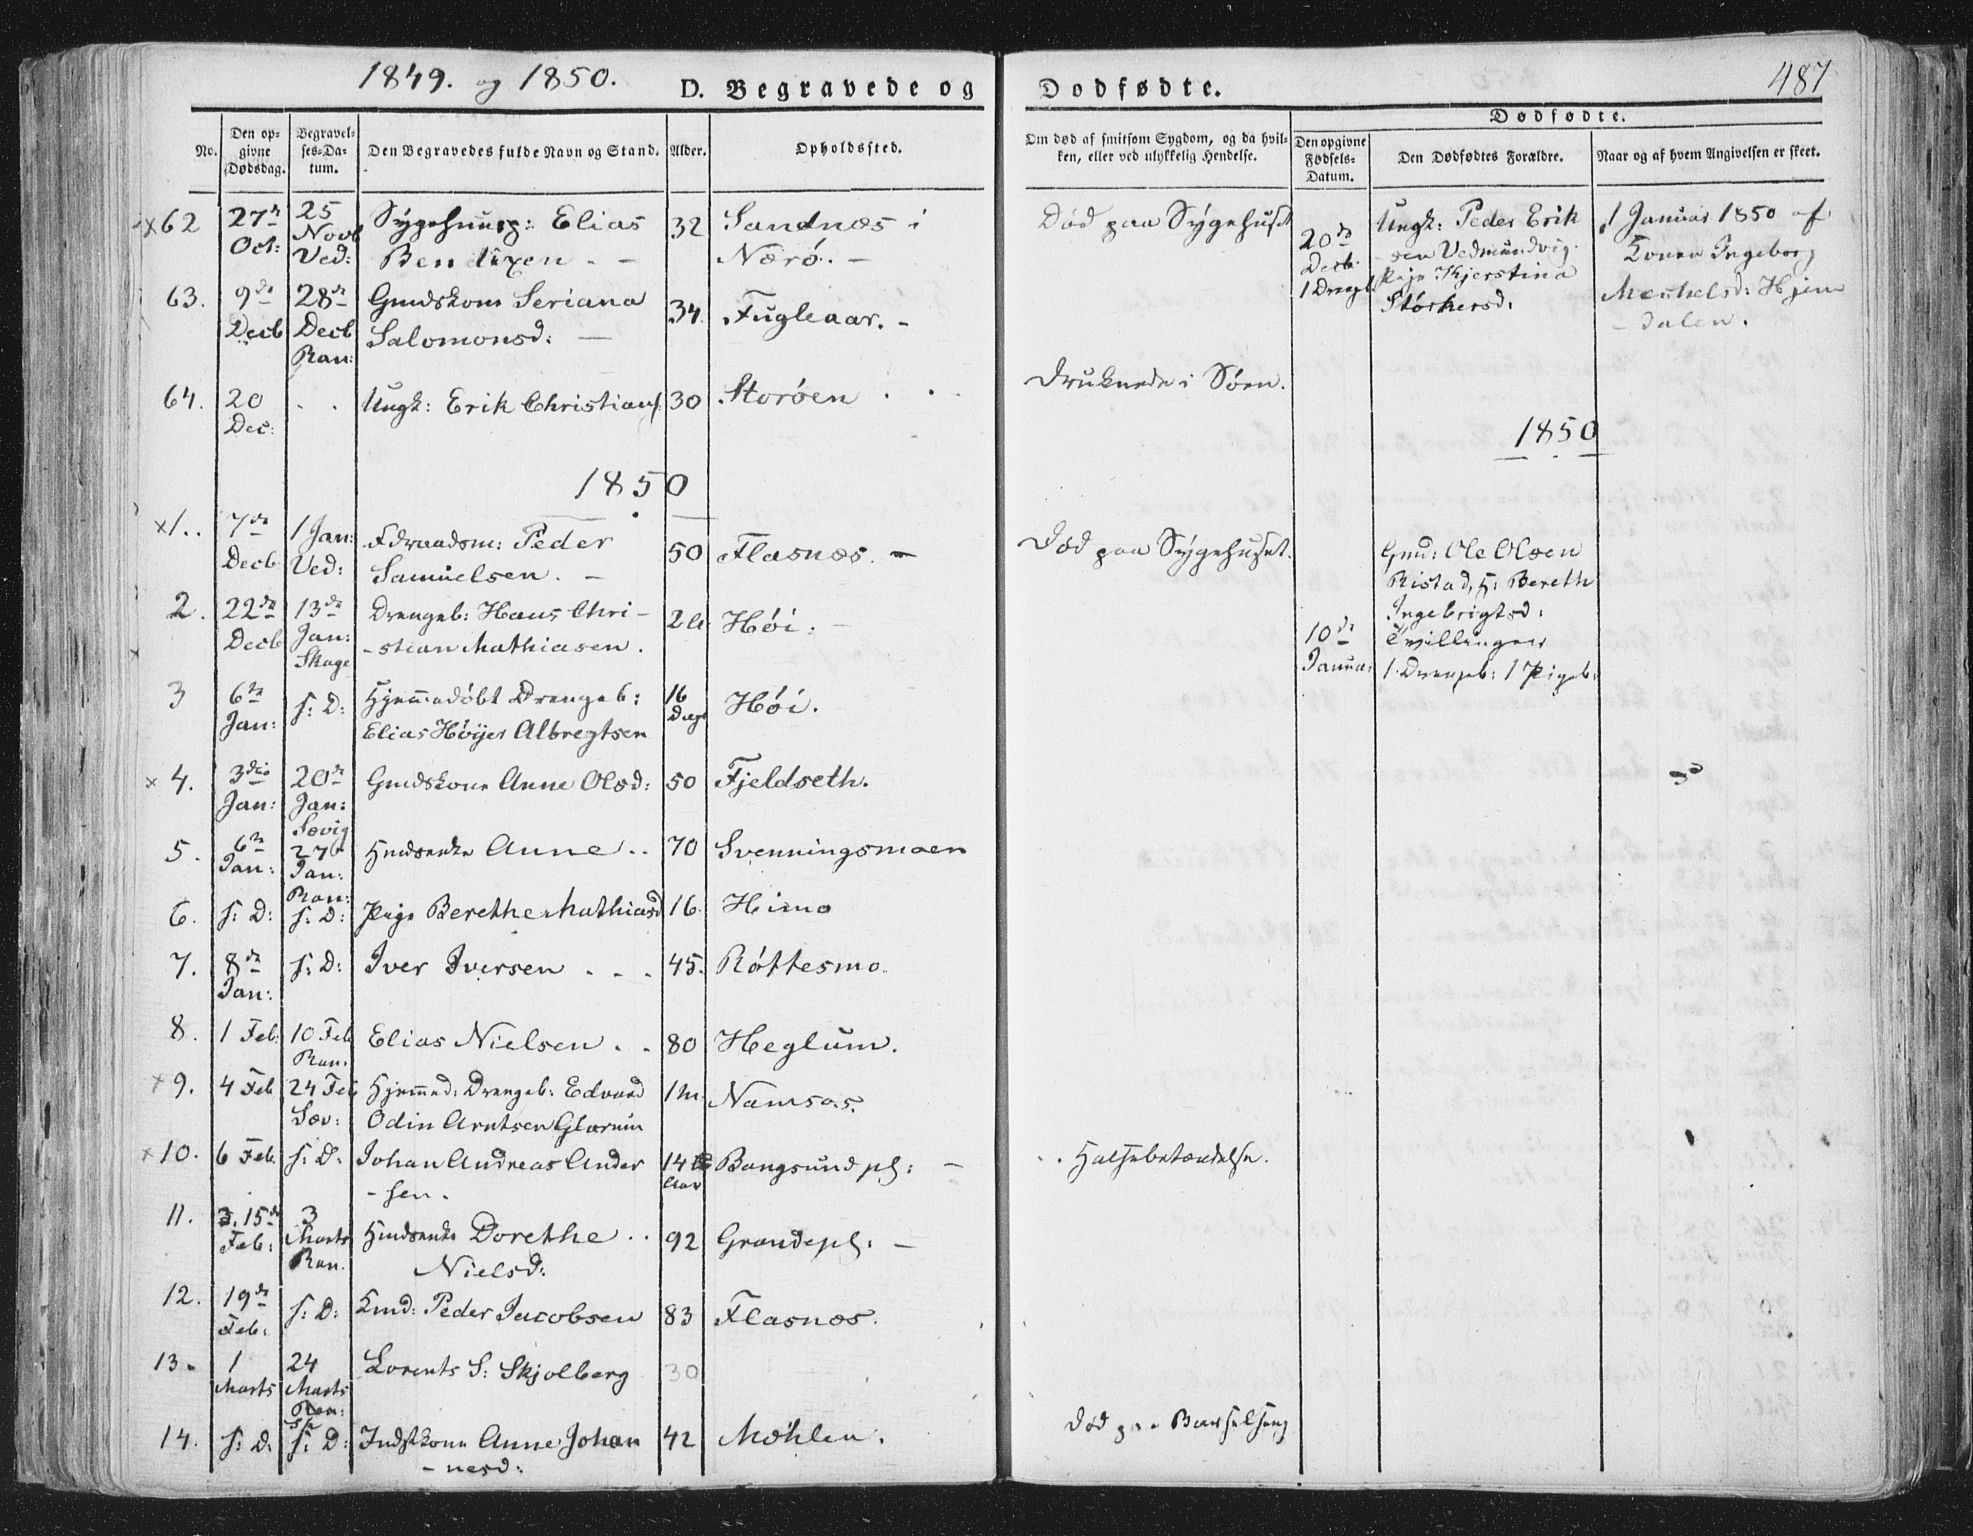 1849. og 1850.
D. Begravede og
Dodfødte.
487
No.
Den op-
givne
Dødsdag.
Begravel-
ses-Da-
tum.
Den Begravedes fulde Navn og Stand.
Alder.
Opholdssted.
Om død af smitsom Sygdom, og da hvil-
ken, eller ved ulykkelig Hendelse.
Dødfødte.
Den opgivne
Fødsels-
Datum.
Den Dødfødtes Forældre.
Naar og af hvem Angivelsen er skeet.
62 27de 25 Elias 32 Sandnæs i Død paa Sygehuset
Oct: Novb Bendixen. - Nærø. -
Ved:
20de Ungk: Peder Erik 1 Januar 1850 af
Decb. sen Vedmundvig. Konen Ingeborg
Pige Kjerstina
Størkersd: dalen.
63. 9de 28de Gmdskone Seriana 34. Fugleaar. -
Decb Decb Salomonsd: -
Ran:
64. 20 . . Ungk: Erik Christians. 30 Storøen . . Druknede i Søen.
Dec:
1850
1850
x1.. 7de 1 Jan: Peder 50 Flasnæs. - Død paa Sygehuset.
Decb. Ved: Samuelsen. -
2. 22de 13de Drengeb: Hans Chri- Høi. -
Decb Jan: -stian Mathiasen.
Skage
Gmd: Ole Olsen
Ristad, H: Bereth
Ingebrigtsd:
10de Tvillinger
Januar 1 Drengeb: 1 Pigeb:
3 6te s: D: Hjemmedøbt Drengeb: 16 Høi.
Jan: Elias Höyer Albregtsen Dage
x 4. 3die 20de Gmdskone Anne Olsd: 50 Fjeldseth.
Jan: Jan:
Sævig
5. 6te 27de Anne.. 70 Svenningsmoen
Jan: Jan:
Ran:
6. s: D: s: D: Pige Berethe Mathiasd 16. Himo
7. 8de s: D: Iver Iversen . . . 45. Røttesmo.
Jan:
8. 1 Feb: 10 Feb Elias Nielsen . . 80 Heglum.
Ran.
x 9. 4 Feb 24 Feb Hjemmed: Drengeb: Edvard 1 M. Namsos.
Sæv: Odin Arntsen Glærum
x 10. 6 Feb. s: D: Johan Andreas Ander 14 Bangsund pl: - . . Halsebetændelse.
-sen. Aar
11. 15de 3 Dorethe .. 92 Grandepl: -
Feb: Marts Nielsd:
Ran.
12. 19de s: D: Peder Jacobsen 83 Flasnæs.
Feb:
13. 1 24 Lorents S: Skjolberg 30
Marts Marts
Ran:
14. s: D: s: D: Indstkone Anne Johan 42 Møhlen. Død paa Barselseng
-nesd: